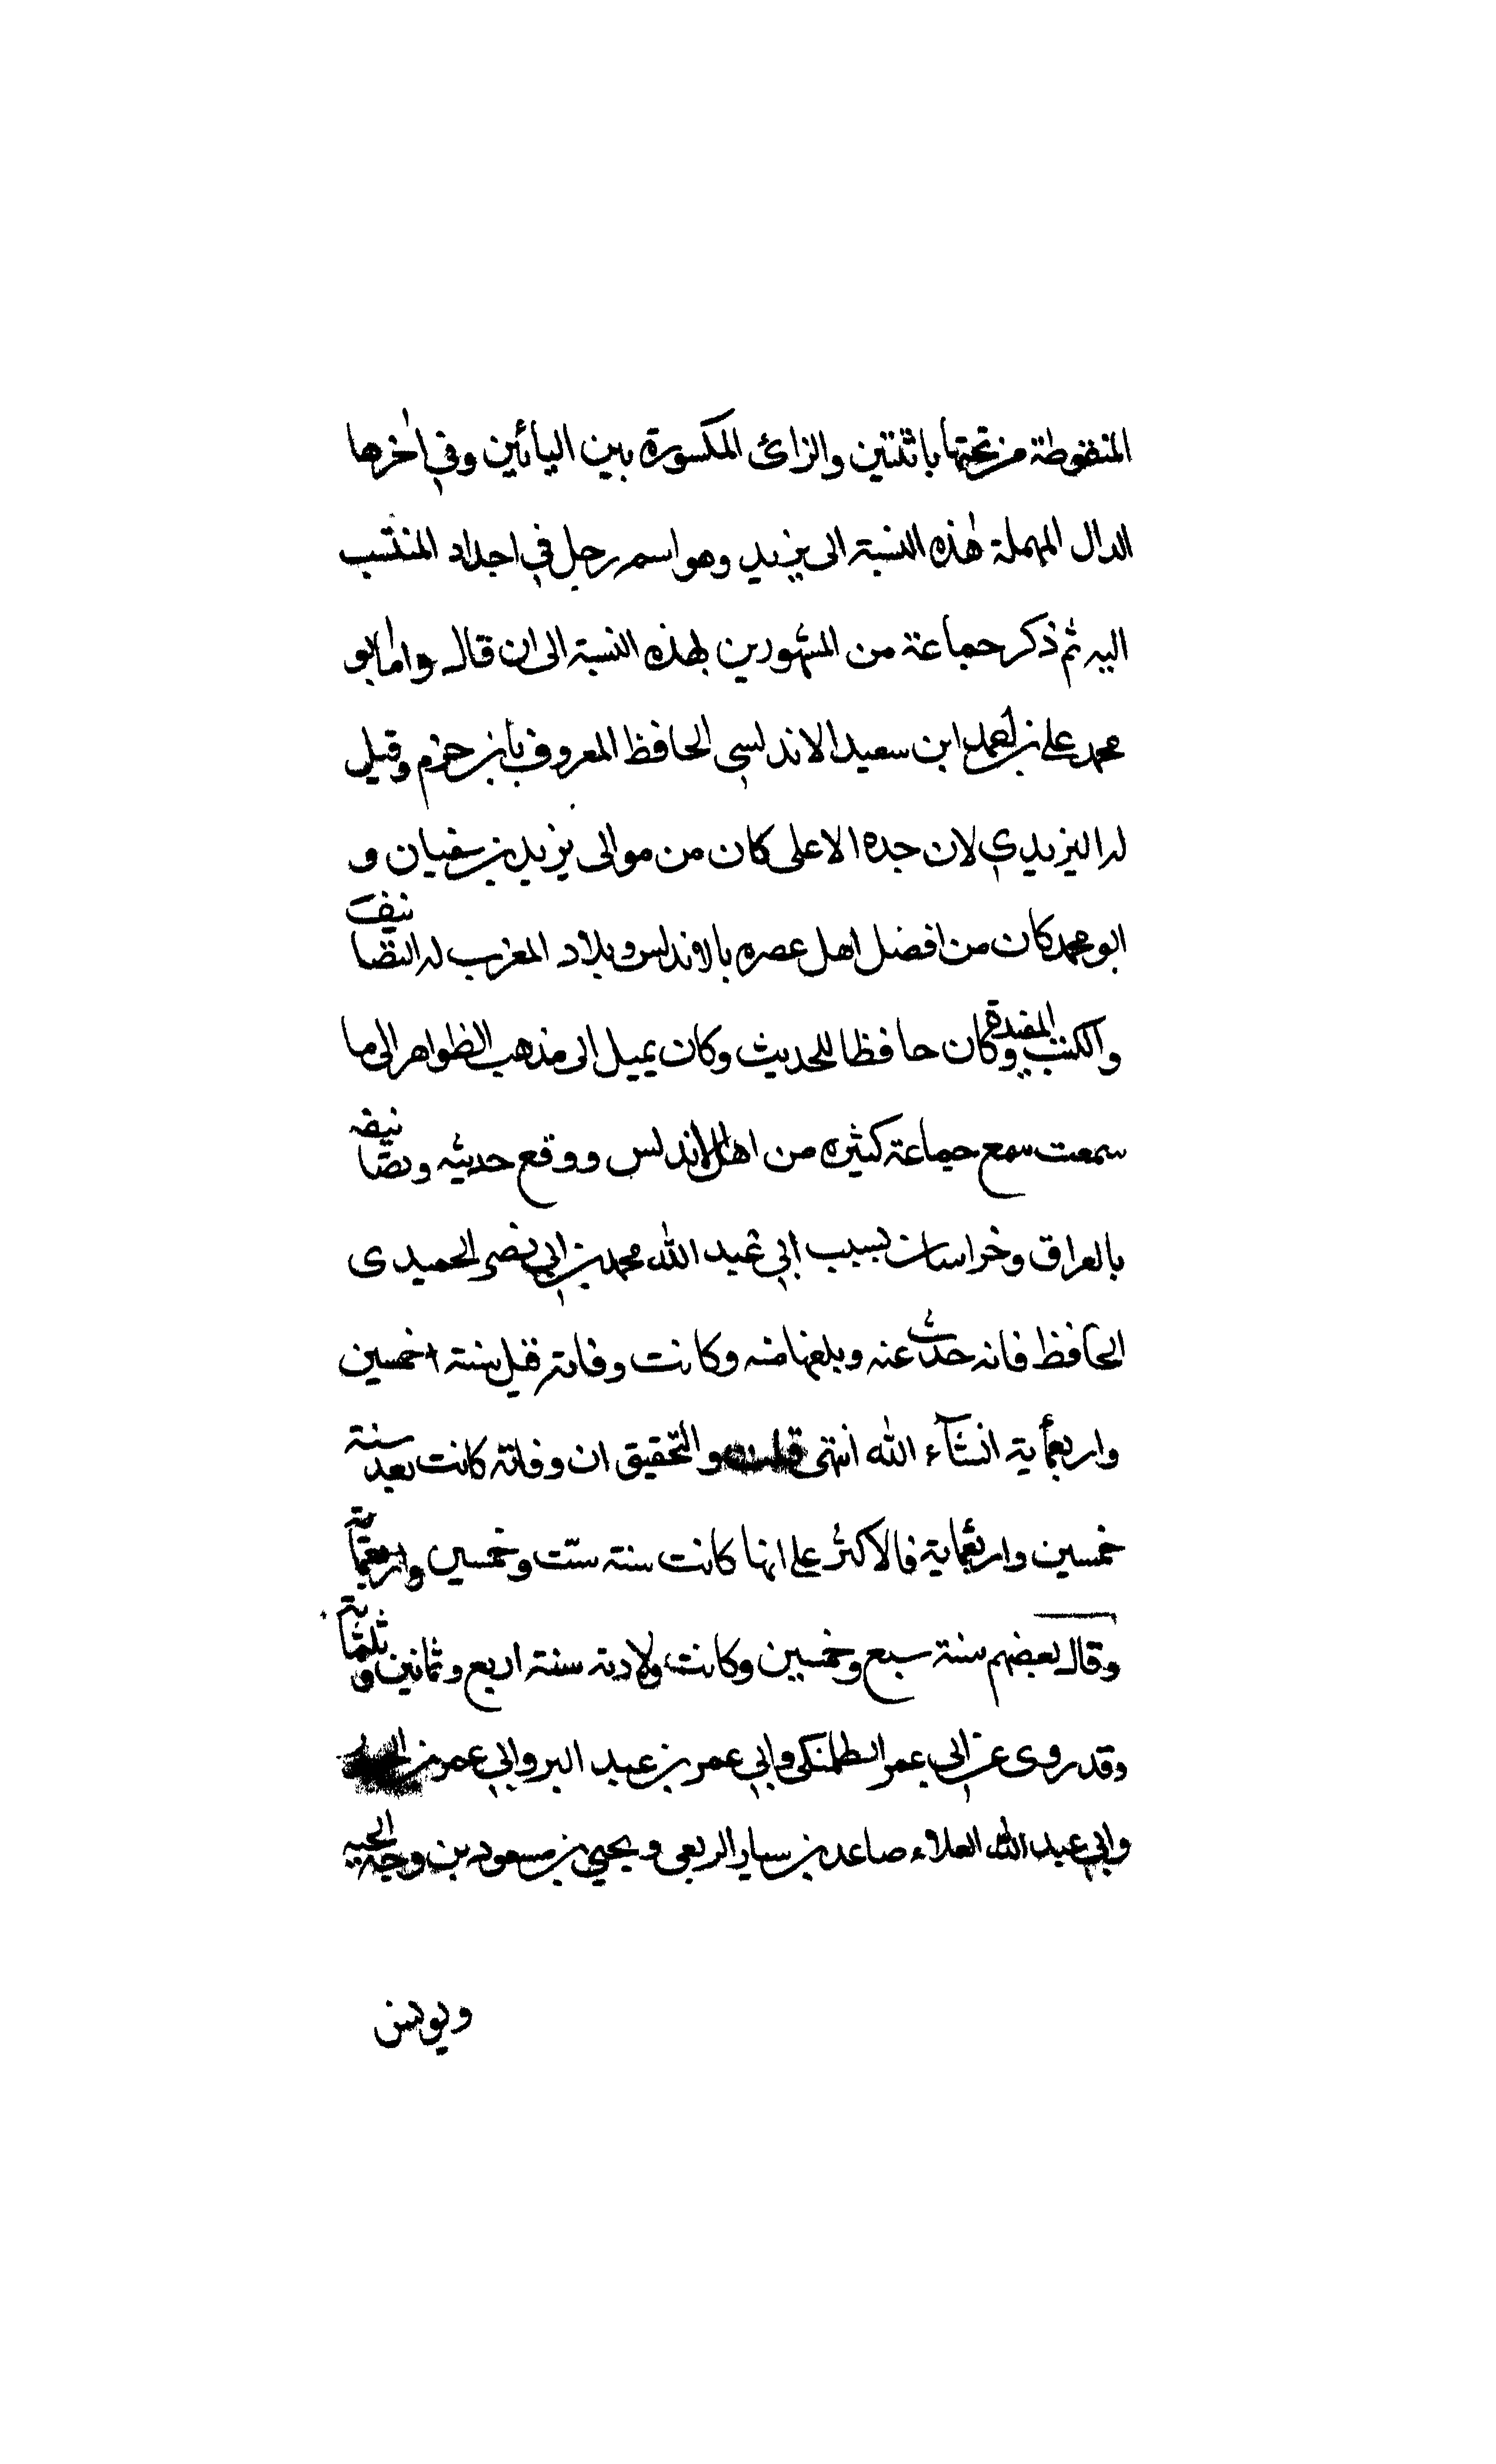 المنقوطة من تحتها باثنتين والزائ المكسورة بين اليائين وفي اخرها
الدال المهملة هذه النسبة الى يزيد وهو اسم رجل في اجداد المنتسب
اليه ثم ذكر جماعة من المشهورين بهذه النسبة الى ان قال واما ابو
محمد على بن احمد ابن سعيد الاندلسي الحافظ المعروف بابن حزم وقيل
له اليزيدي لان جده الاعلى كان من موالى يزيد بن سفيان و
ابو محمد كان من افضل اهل عصره بالاندلس وبلاد المغرب له التصانيف
والكتب المفيدة وكان حافظا للحديث وكان يميل الى مذهب الظواهر الى ما
سمعت سمع جماعة كثيره من اهل الاندلس ووقع حديثه وتصانيفه
بالعراق وخراسان بسبب ابي عبد الله محمد بن ابي نصر الحميدى
الحافظ فانه حدث عنه وبلغنا منه وكانت وفاته قبل سنة خمسين
واربعماية انشآء الله انتهى قلت والتحقيق ان وفاته كانت بعد سنة
خمسين واربعماية فالاكثر على انها كانت سنة ست وخمسين واربعماية
وقال بعضهم سنة سبع وخمسين وكانت ولادته سنة اربع وثمانين وثلثماية
وقد روى عن ابي عمر الطلمنكى وابي عمر بن عبد البر وابي عمر بن
وابي عبد الله العلاء صاعد بن سيار الربعى ويحيي بن مسعود بن وجه الحيه
ويونس